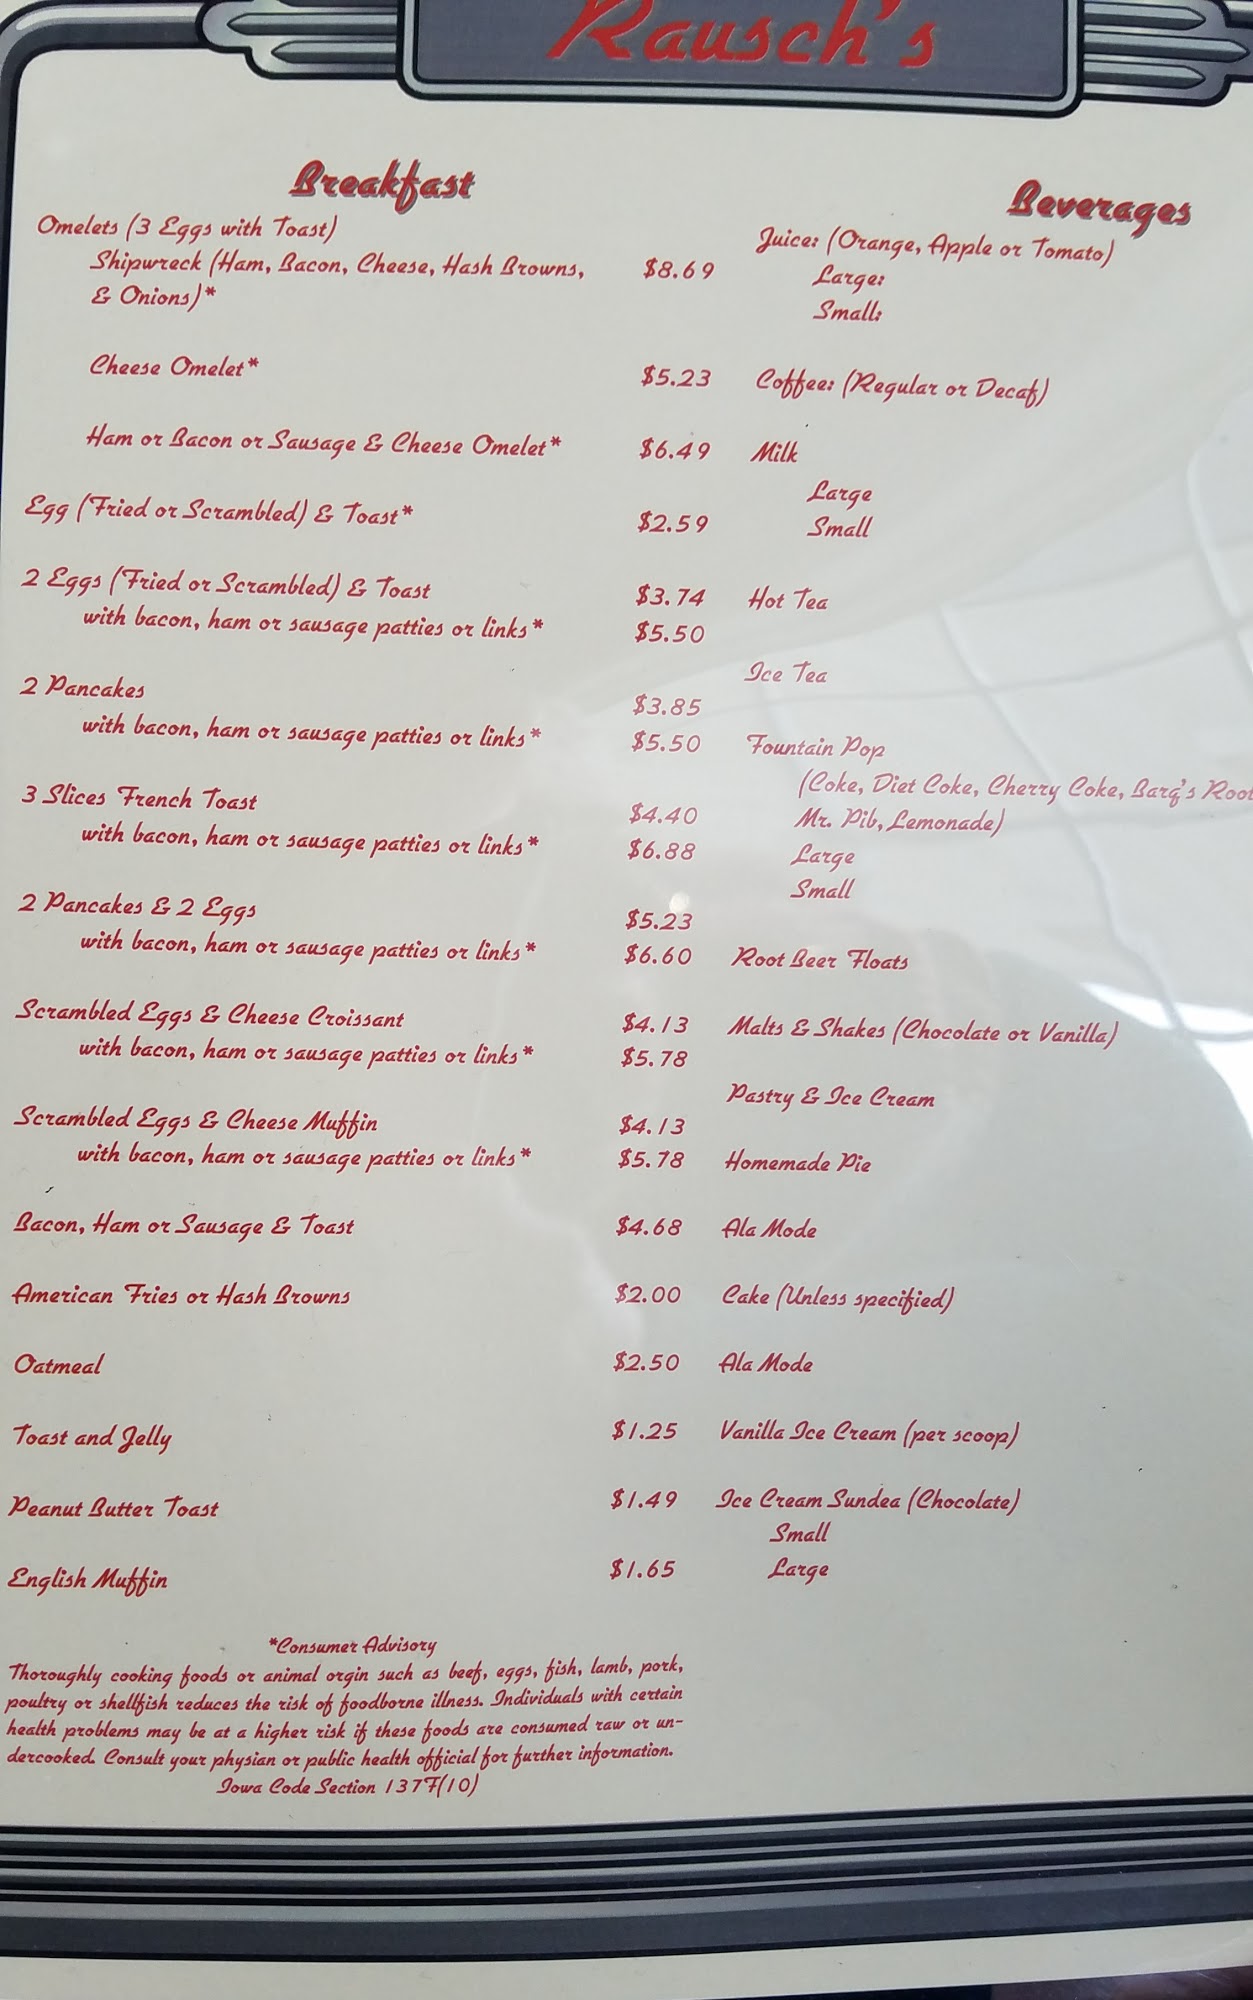 Rausch's
Breakfast
Omelets (3 Eggs with Toast)
Shipwreck (Ham, Bacon, Cheese, Hash Browns, $8.69
& Onions)*
Cheese Omelet* $5.23
Ham or Bacon or Sausage & Cheese Omelet* $6.49
Egg (Fried or Scrambled) & Toast* $2.59
2 Eggs (Fried or Scrambled) & Toast $3.74
with bacon, ham or sausage patties or links* $5.50
2 Pancakes $3.85
with bacon, ham or sausage patties or links* $5.50
3 Slices French Toast $4.40
with bacon, ham or sausage patties or links* $6.88
2 Pancakes & 2 Eggs $5.23
with bacon, ham or sausage patties or links* $6.60
Scrambled Eggs & Cheese Croissant $4.13
with bacon, ham or sausage patties or links* $5.78
Scrambled Eggs & Cheese Muffin $4.13
with bacon, ham or sausage patties or links* $5.78
Bacon, Ham or Sausage & Toast $4.68
American Fries or Hash Browns $2.00
Oatmeal $2.50
Toast and Jelly $1.25
Peanut Butter Toast $1.49
English Muffin $1.65
*Consumer Advisory
Thoroughly cooking foods or animal orgin such as beef, eggs, fish, lamb, pork,
poultry or shellfish reduces the risk of foodborne illness. Individuals with certain
health problems may be at a higher risk if these foods are consumed raw or un-
dercooked. Consult your physian or public health official for further information.
Iowa Code Section 137F(10)
Beverages
Juice: (Orange, Apple or Tomato)
Large:
Small:
Coffee: (Regular or Decaf)
Milk
Large
Small
Hot Tea
Ice Tea
Fountain Pop
(Coke, Diet Coke, Cherry Coke, Barq's Root
Mr. Pib, Lemonade)
Large
Small
Root Beer Floats
Malts & Shakes (Chocolate or Vanilla)
Pastry & Ice Cream
Homemade Pie
Ala Mode
Cake (Unless specified)
Ala Mode
Vanilla Ice Cream (per scoop)
Ice Cream Sundea (Chocolate)
Small
Large